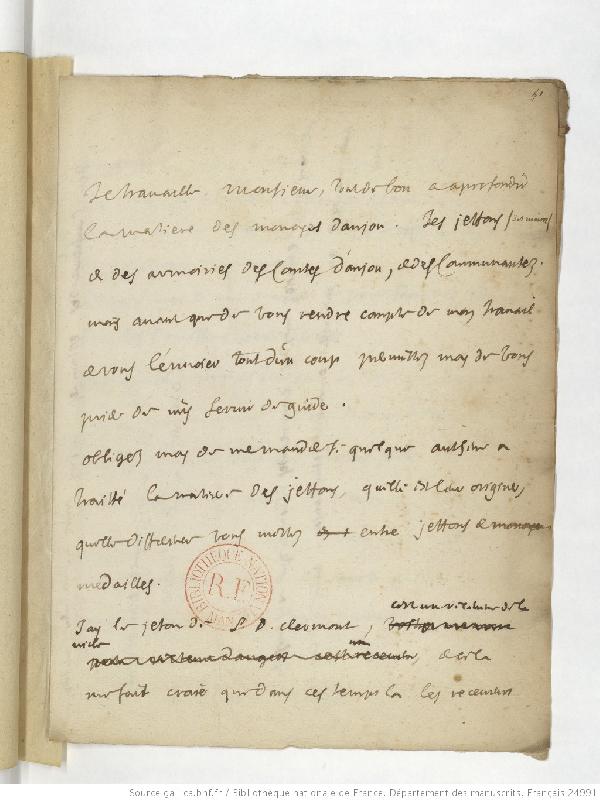 61
Je travaille, Monsieur, tout de bon a aprofondir
la matiere des monoyes danjou. des jettons
& des armoiries des Comtes d'anjou, & des Communautez.
mais avant que de vous rendre compte de mon travail
& vous l'envoier tout d'un coup permettez moy de vous
prier de my servir de guide.
obligez moy de me mander si quelque autheur a
traitté la matiere des jettons, quelle est leur origine,
quelle difference vous mettez entre jettons &
medailles.
Jay le jeton de P. D. Clermont, cest un de la
ville
me fait croire que dans ces temps la les receveurs
BIBLIOTHEQUE NATIONALE
R.F.
Source gallica.bnf.fr / Bibliothèque nationale de France. Département des manuscrits. Français 24991